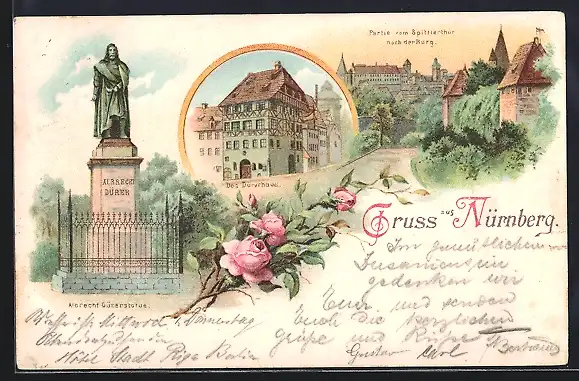 Partie vom Spittlerthor
nach der Burg.
ALBRECHT
DÜRER
Das Dürerhaus.
Gruss aus Nürnberg.
Albrecht Dürerstatue.
Im gemütlichen
Zusammensein
gedenken wir
Euer und senden
Euch die herzlichen
Grüße und Küsse
Gustav Carl Bertram
Mittwoch Donnerstag
Hôtel Stadt Riga Berlin